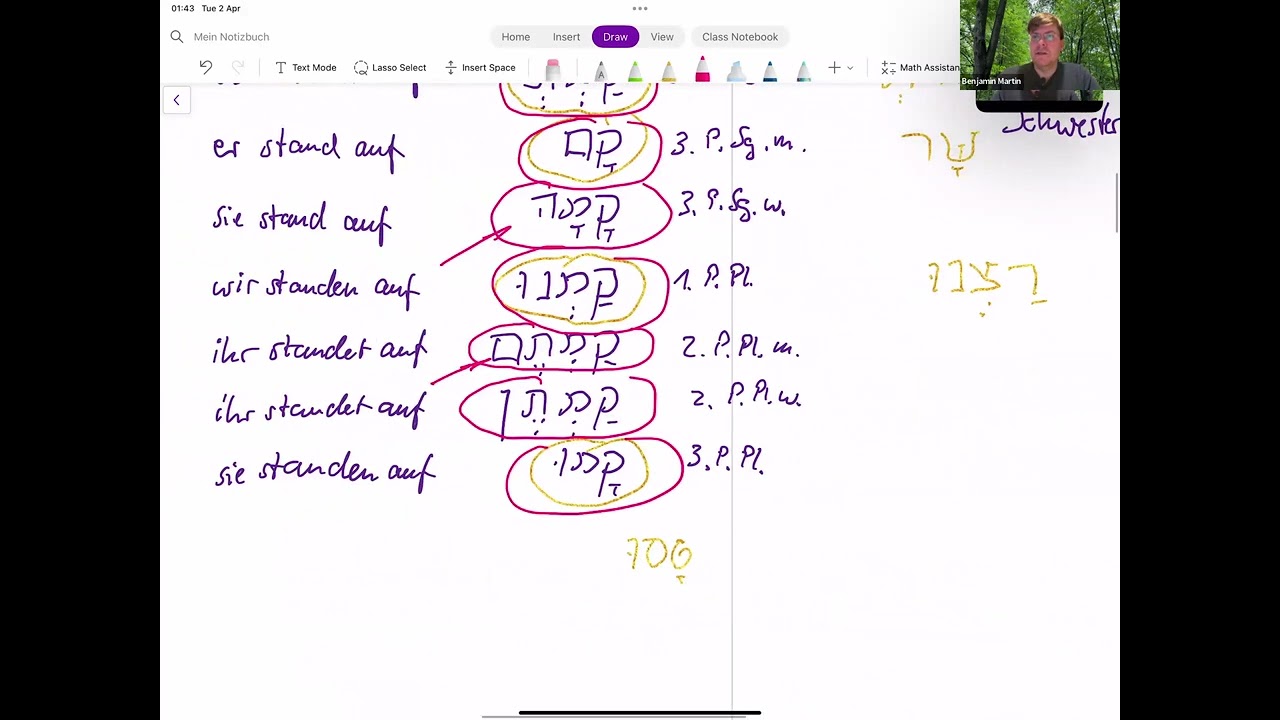 01:43 Tue 2 Apr
Mein Notizbuch
Home Insert Draw View Class Notebook
Text Mode Lasso Select Insert Space Math Assistan
Benjamin Martin
Schwester
er stand auf קָם 3. P. Sg. m.
שָׁר
sie stand auf קָמָה 3. P. Sg. w.
wir standen auf קַמְנוּ 1. P. Pl.
רַצְנוּ
ihr standet auf קַמְתֶּם 2. P. Pl. m.
ihr standet auf קַמְתֶּן 2. P. Pl. w.
sie standen auf קָמוּ 3. P. Pl.
טָסוּ